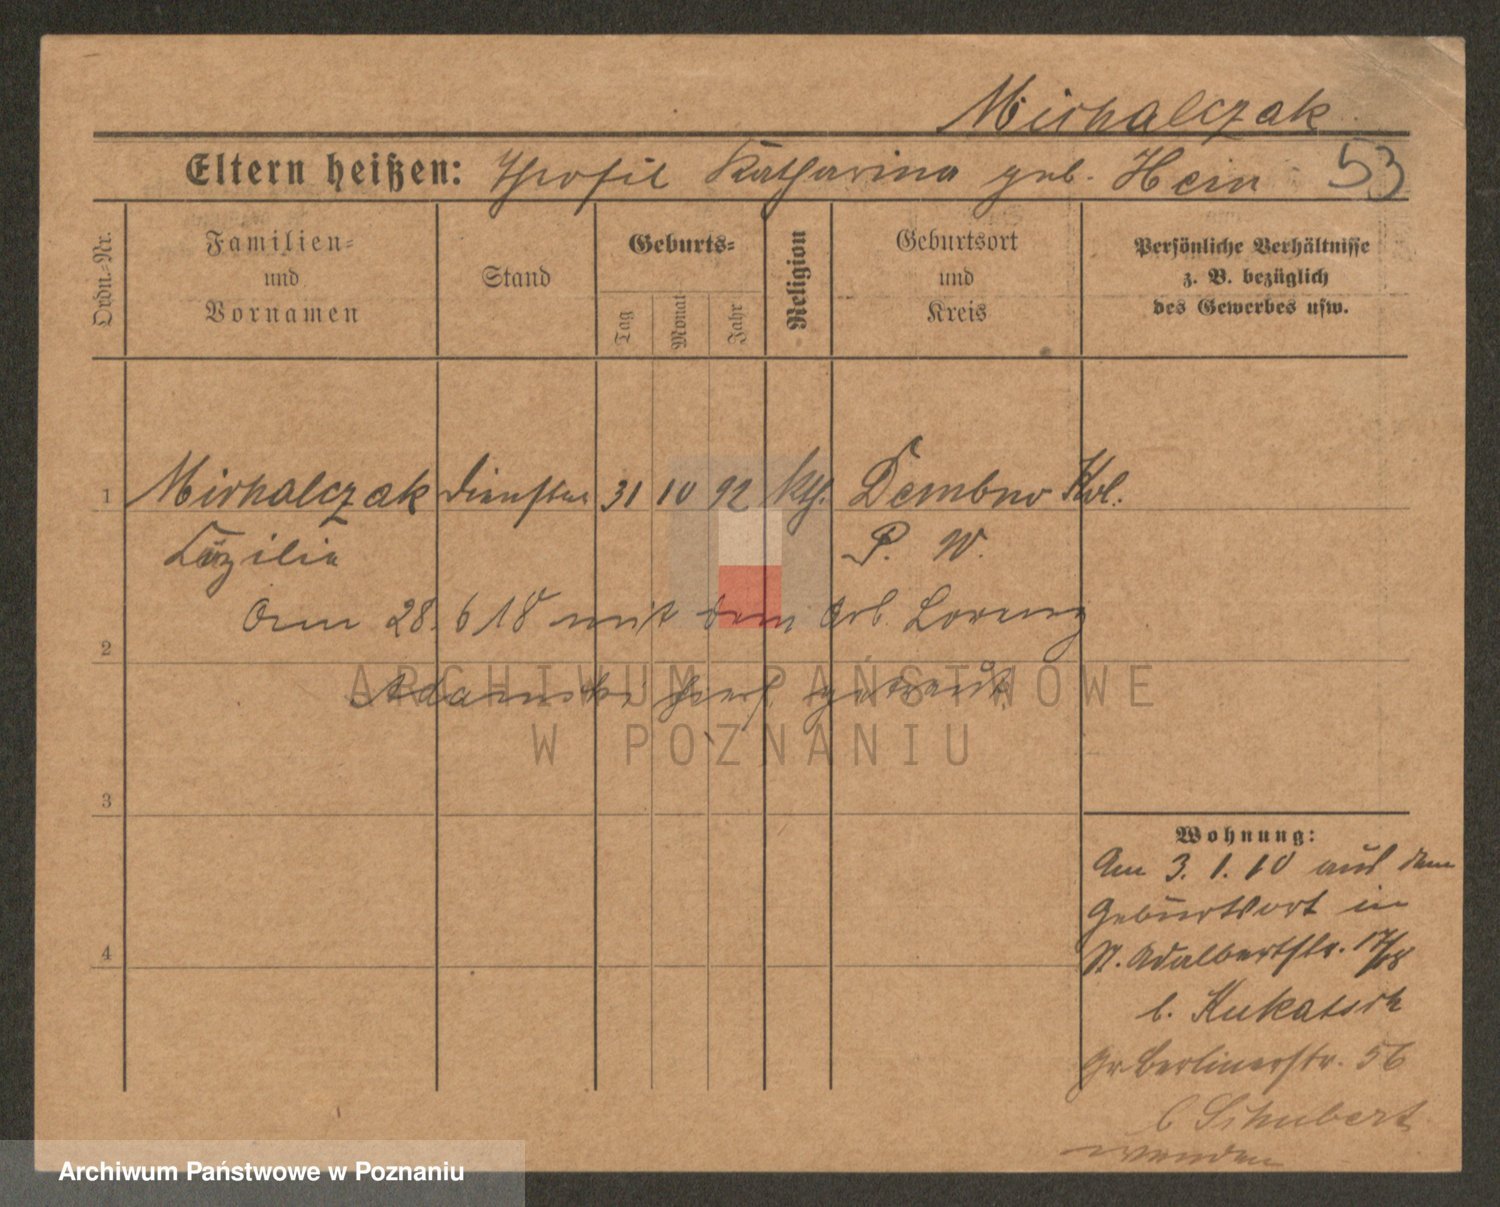 Michalczak
Eltern heißen: Theofil Katharina geb. Hein 53
Ordn.-Nr.
Familien-
und
Vornamen
Stand
Geburts-
Tag
Monat
Jahr
Religion
Geburtsort
und
Kreis
Persönliche Verhältnisse
z. B. bezüglich
des Gewerbes usw.
1 Michalczak 31 10 92 kth. Dembno Kol.
Cäzilie P. W.
Am 28. 6 18 mit dem Arb. Lorenz
2
Adamski hier getraut.
3
4
Wohnung:
Am 3. 1. 10 aus dem
Geburtsort in
St. Adalbertstr. 17/18
b.
Gr. Berlinerstr. 56
b Schubert
wenden
ARCHIWUM PAŃSTWOWE
W POZNANIU
Archiwum Państwowe w Poznaniu